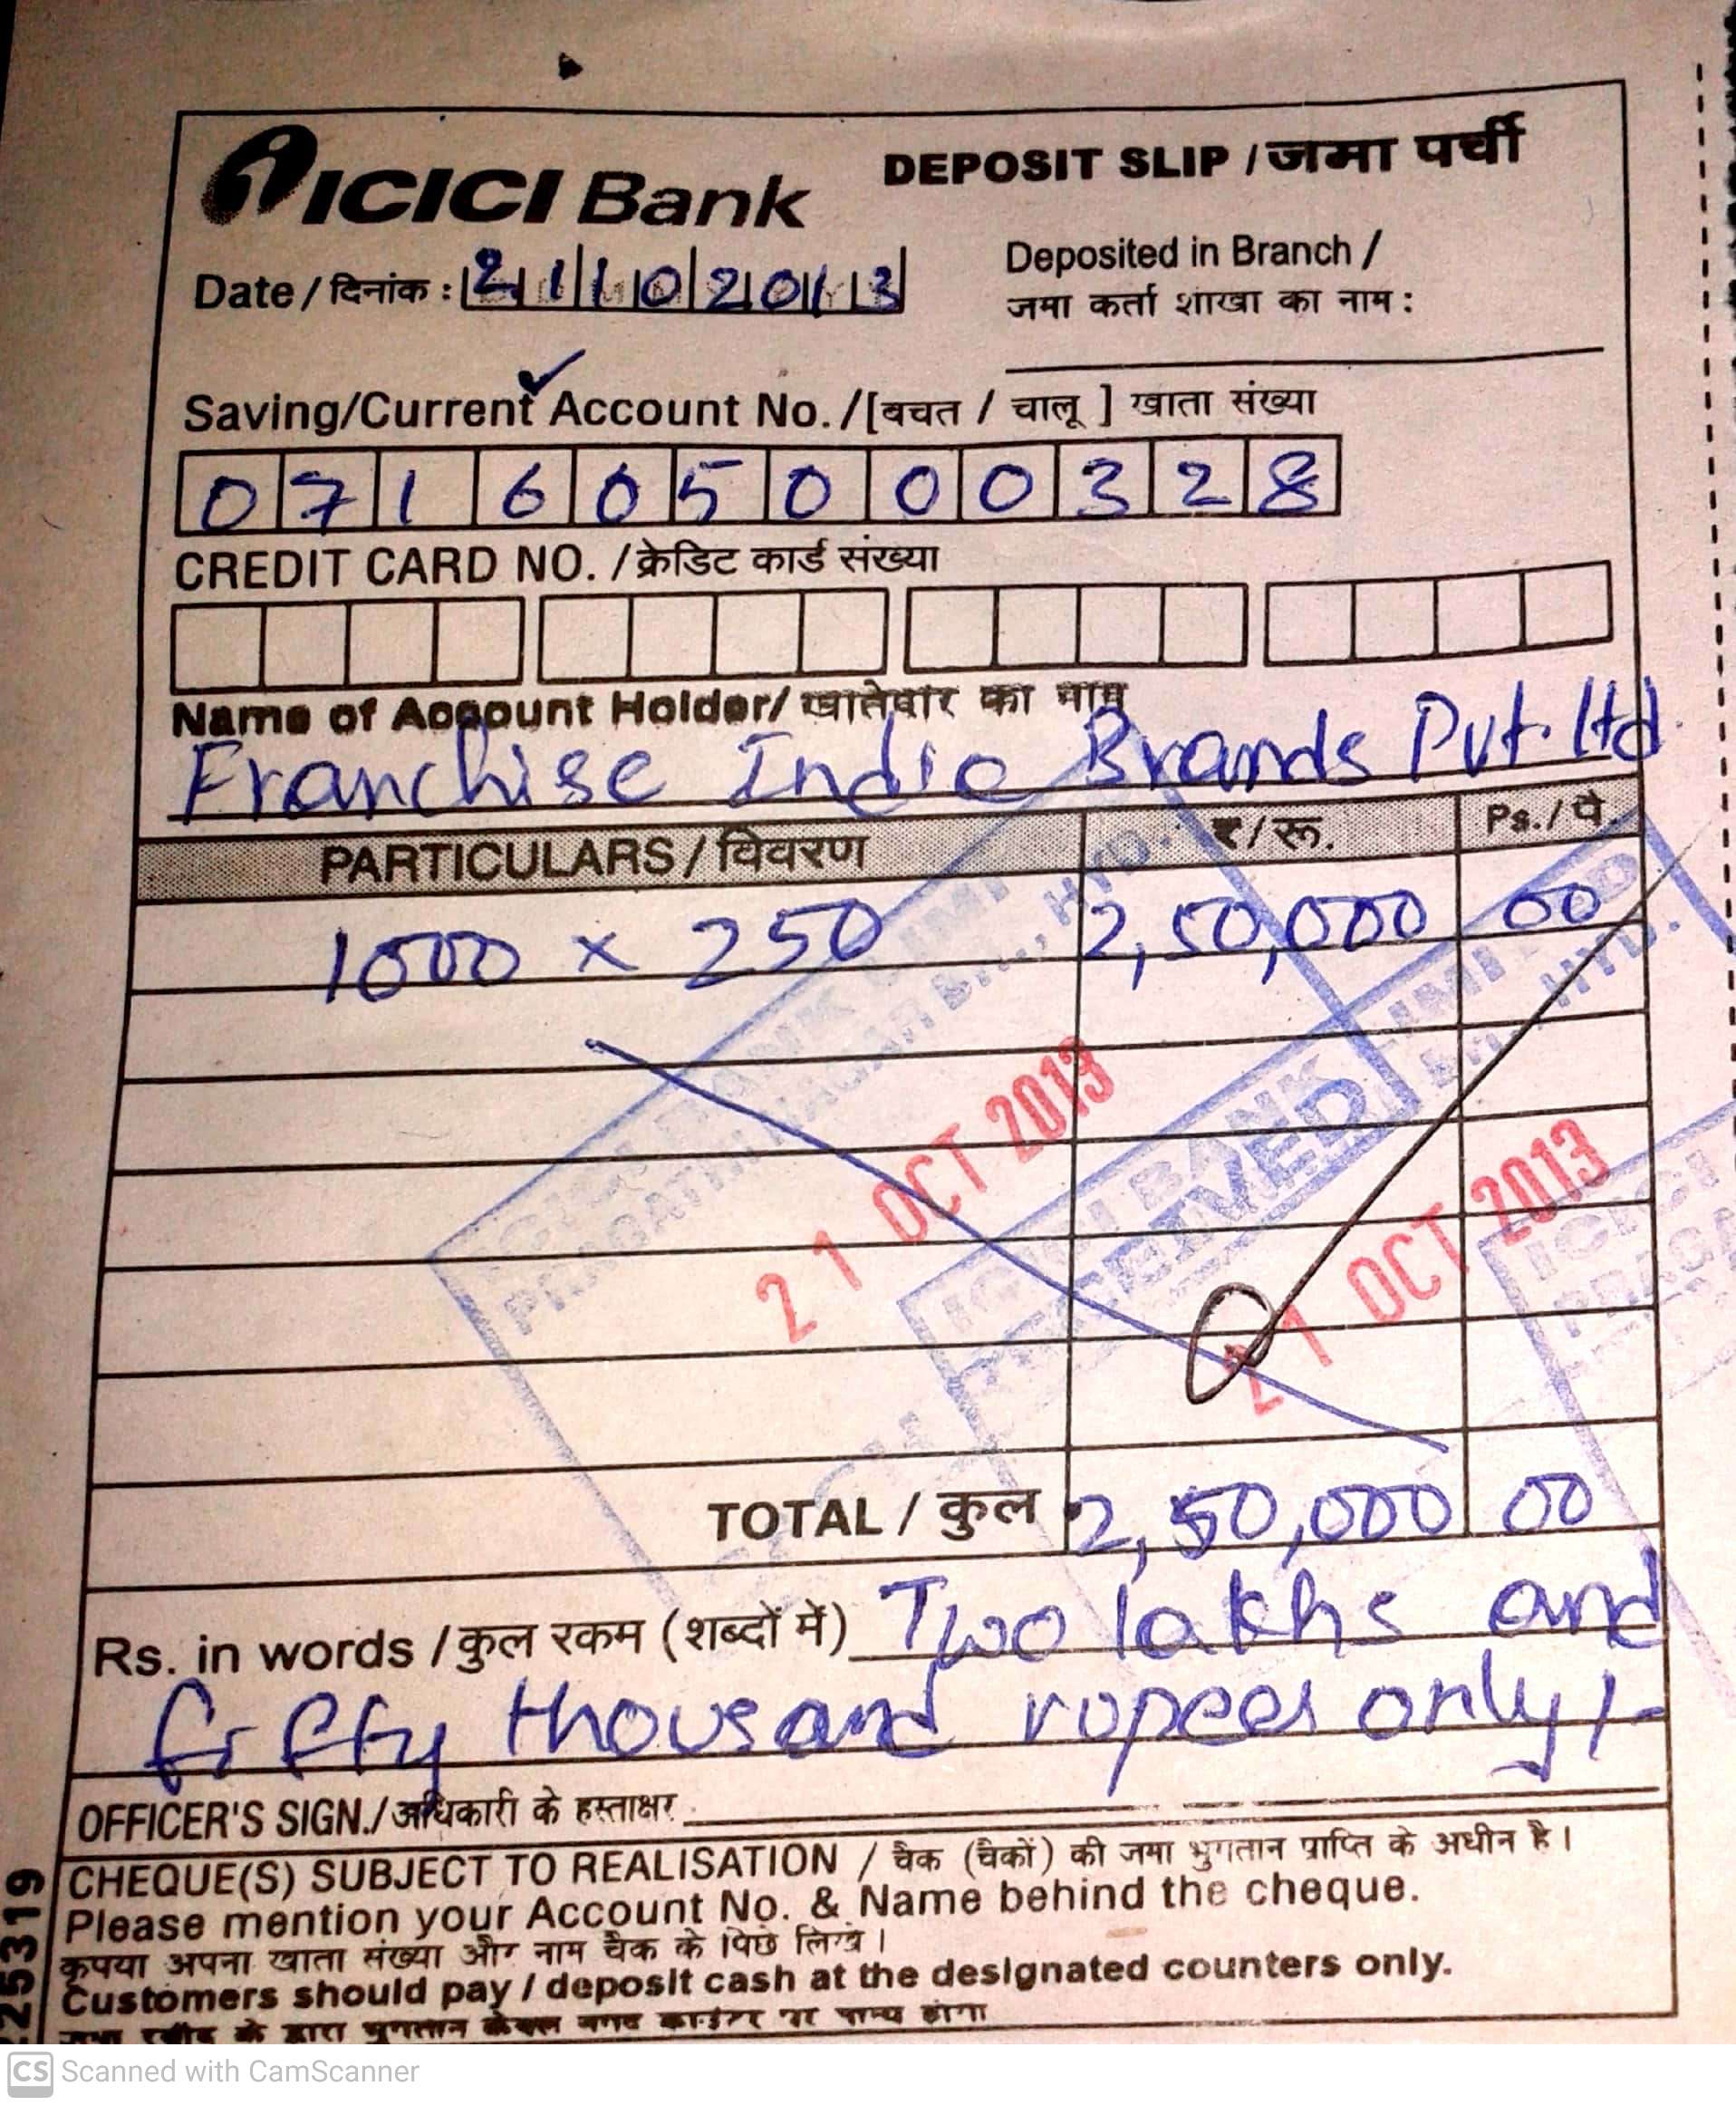 ICICI Bank
DEPOSIT SLIP / जमा पर्ची
Date / दिनांक : 21102013
Deposited in Branch /
जमा कर्ता शाखा का नाम :
Saving/Current Account No. /[बचत / चालू ] खाता संख्या
071605000328
CREDIT CARD NO. /क्रेडिट कार्ड संख्या
Name of Account Holder/ खातेदार का नाम
Franchise India Brands Pvt. ltd.
PARTICULARS / विवरण ₹/रू. Ps./पै.
1000 x 250 2,50,000 00
ICICI BANK LIMI
PRAGATHI NAGAR BR., HYD.
21 OCT 2013
ICICI BANK LIMITED
RECEIVED
HYD.
21 OCT 2013
ICICI
PRAGA
TOTAL / कुल 2,50,000 00
Rs. in words /कुल रकम (शब्दों में) Two lakhs and
fifty thousand rupees only/-
OFFICER'S SIGN./अधिकारी के हस्ताक्षर
CHEQUE(S) SUBJECT TO REALISATION / चैक (चैकों) की जमा भुगतान प्राप्ति के अधीन है।
Please mention your Account No. & Name behind the cheque.
कृपया अपना खाता संख्या और नाम चैक के पिछे लिखे।
Customers should pay / deposit cash at the designated counters only.
25319
CS Scanned with CamScanner